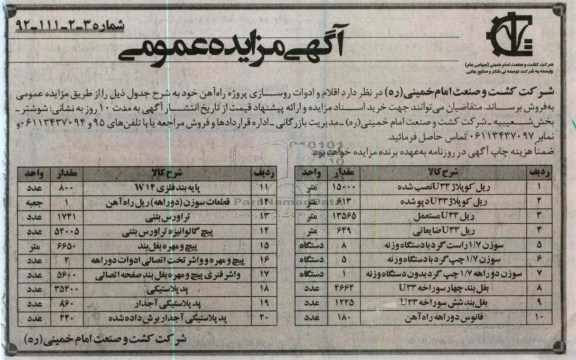 شماره ۳-۲-۱۱۱-۹۲
آگهی مزایده عمومی
شرکت کشت و صنعت امام خمینی (سهامی عام)
وابسته به شرکت توسعه نی شکر و صنایع جانبی
شرکت کشت و صنعت امام خمینی (ره) در نظر دارد اقلام و ادوات روسازی پروژه راه‌آهن خود به شرح جدول ذیل را از طریق مزایده عمومی
به‌فروش برساند. متقاضیان می‌توانند جهت خرید اسناد مزایده و ارائه پیشنهاد قیمت از تاریخ انتشار آگهی به مدت ۱۰ روز به نشانی: شوشتر -
بخش شعیبیه - شرکت کشت و صنعت امام خمینی (ره) - مدیریت بازرگانی - اداره قراردادها و فروش مراجعه یا با تلفن‌های ۹۵ و ۰۶۱۱۳۴۳۷۰۹۴ و
نمابر ۰۶۱۱۳۴۳۷۰۹۷ تماس حاصل فرمائید.
ضمناً هزینه چاپ آگهی در روزنامه به‌عهده برنده مزایده خواهد بود.
ردیف شرح کالا مقدار واحد
۱ ریل کوپلاژ U33 نصب شده ۱۵۰۰۰ متر
۲ ریل کوپلاژ U33 دپو شده ۶۱۳ متر
۳ ریل U33 مستعمل ۱۳۵۶۵ متر
۴ ریل U33 ضایعاتی ۶۴۹ متر
۵ سوزن ۱/۷ راست گرد با دستگاه وزنه ۸ دستگاه
۶ سوزن ۱/۷ چپ گرد با دستگاه وزنه ۵ دستگاه
۷ سوزن دوراهه ۱/۷ چپ گرد بدون دستگاه وزنه ۱ دستگاه
۸ بغل بند چهار سوراخه U33 ۴۶۶۴ عدد
۹ بغل بند شش سوراخه U33 ۱۲۲۵ عدد
۱۰ فانوس دوراهه راه آهن ۱۸۰ عدد
ردیف شرح کالا مقدار واحد
۱۱ پایه بند فلزی W14 ۸۰۰ عدد
۱۲ قطعات سوزن (دوراهه) ریل راه آهن ۱ جعبه
۱۳ تراورس بتنی ۱۷۴۱ عدد
۱۴ پیچ گالوانیزه تراورس بتنی ۵۲۰۰۵ عدد
۱۵ پیچ و مهره بغل بند ۶۶۵۰ متر
۱۶ پیچ و مهره و واشر تخت اتصالی ادوات دوراهه ۲ عدد
۱۷ واشر فنری پیچ و مهره بغل بند صفحه اتصالی ۵۶۰۰ عدد
۱۸ پد پلاستیکی ۳۵۲۰۰ عدد
۱۹ پد پلاستیکی آجدار ۸۶۰ عدد
۲۰ پد پلاستیکی آجدار برش داده شده ۲۴۰ عدد
شرکت کشت و صنعت امام خمینی (ره)